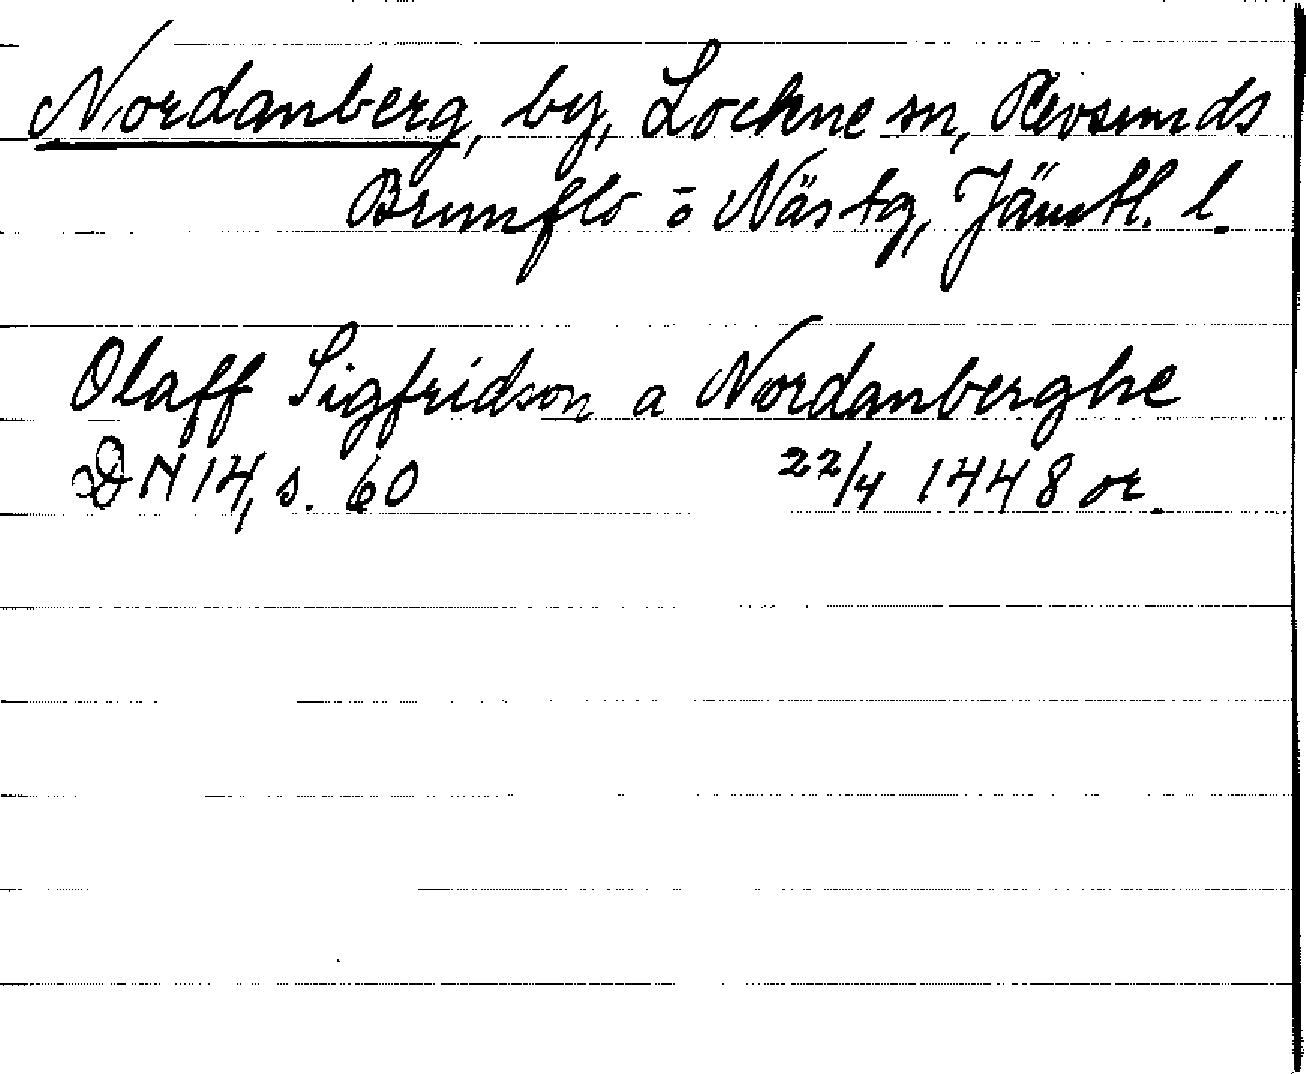 Nordanberg, by, Lockne sn, Revsunds
Brunflo o Näs tg, Jämtl. l.
Olaff Sigfridson a Nordanberghe
DN 14, s. 60 22/4 1448 or.